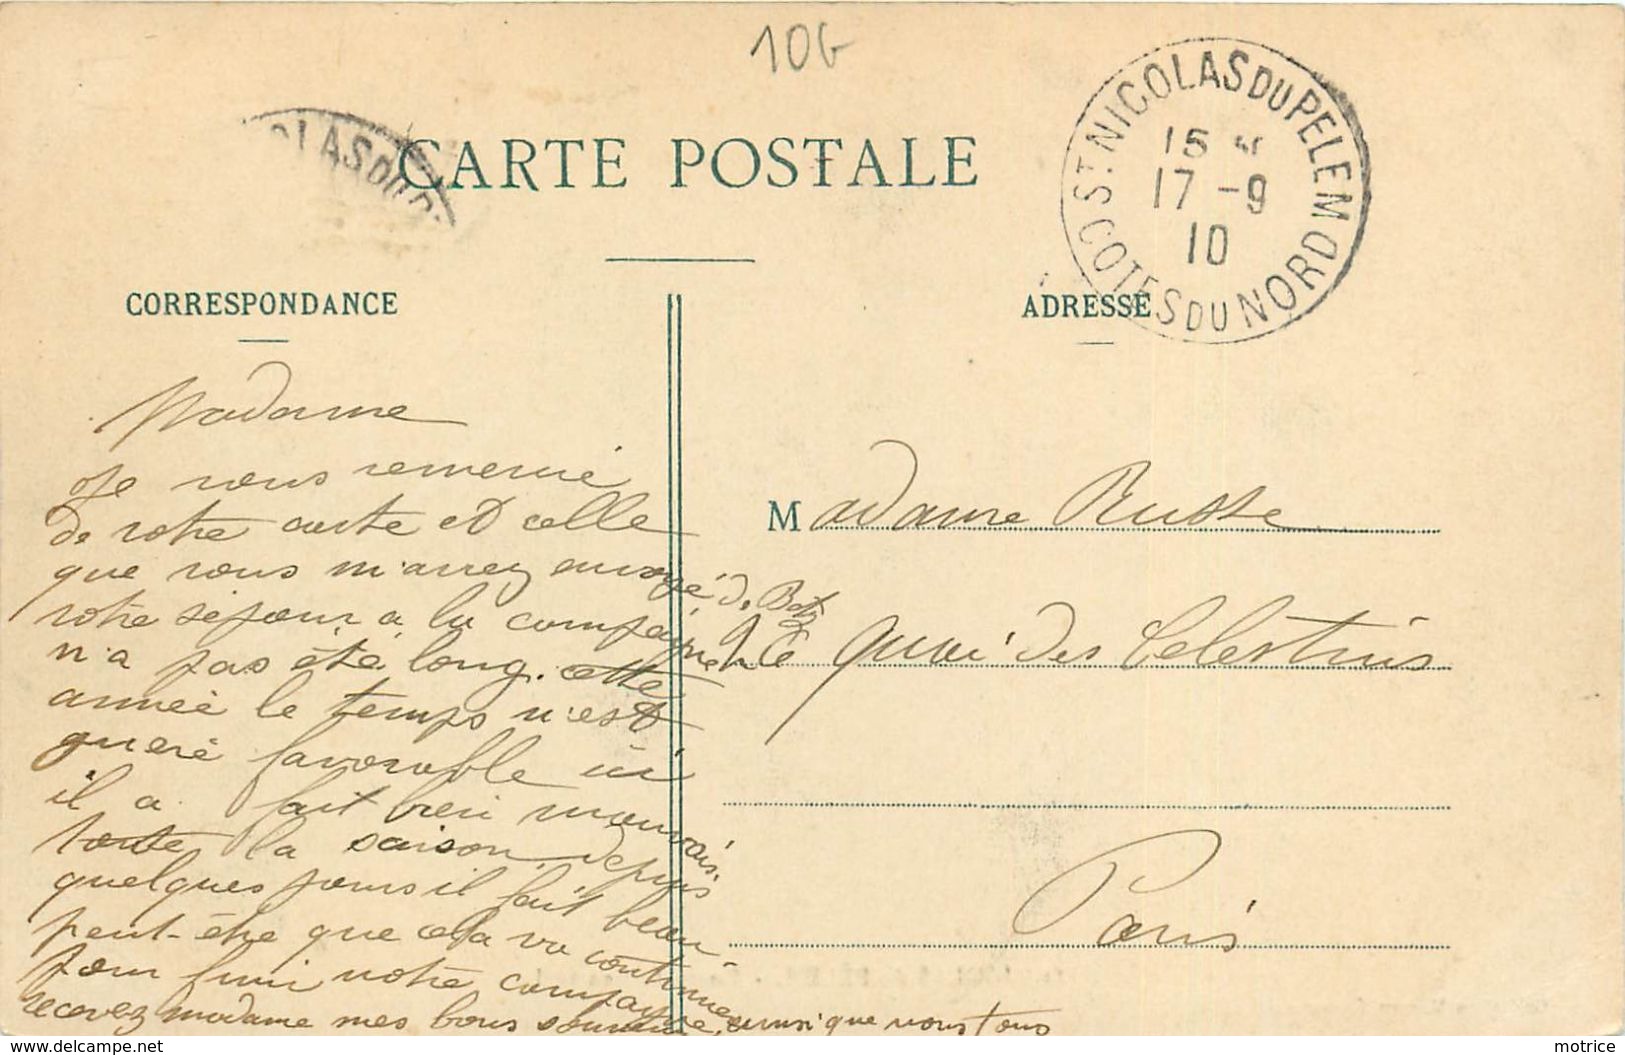 10G
CARTE POSTALE
OLAS DU P
ST NICOLAS DU PELEM
15
17 - 9
10
COTES DU NORD
CORRESPONDANCE
Madame
Je vous remercie
de votre carte et celle
que vous m'avez envoyé d. Batz
votre séjour a la compagne
n'a pas été long. cette
année le temps n'est
guere favorable ici
il a fait bien mauvais.
toute la saison. depuis
quelques jours il fait beau
peut-être que cela va continue
pour finir notre compagne
recevez madame mes bons ainsi que nous tous
ADRESSE
Madame Russe
quai des Celestins
Paris
www.delcampe.net
motrice